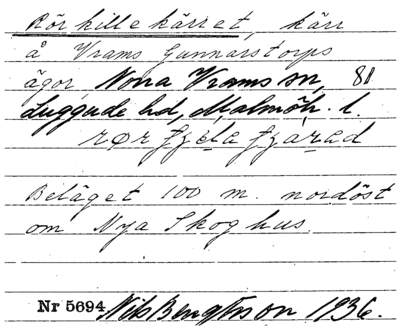 Rörkillekärret, kärr
å Vrams Gunnarstorps
ägor, Norra Vrams sn, 81
Luggude hd, Malmöh. l.
Beläget 100 m. nordöst
om Nya Skoghus.
Nr 5694 Nils Bengtsson 1936.